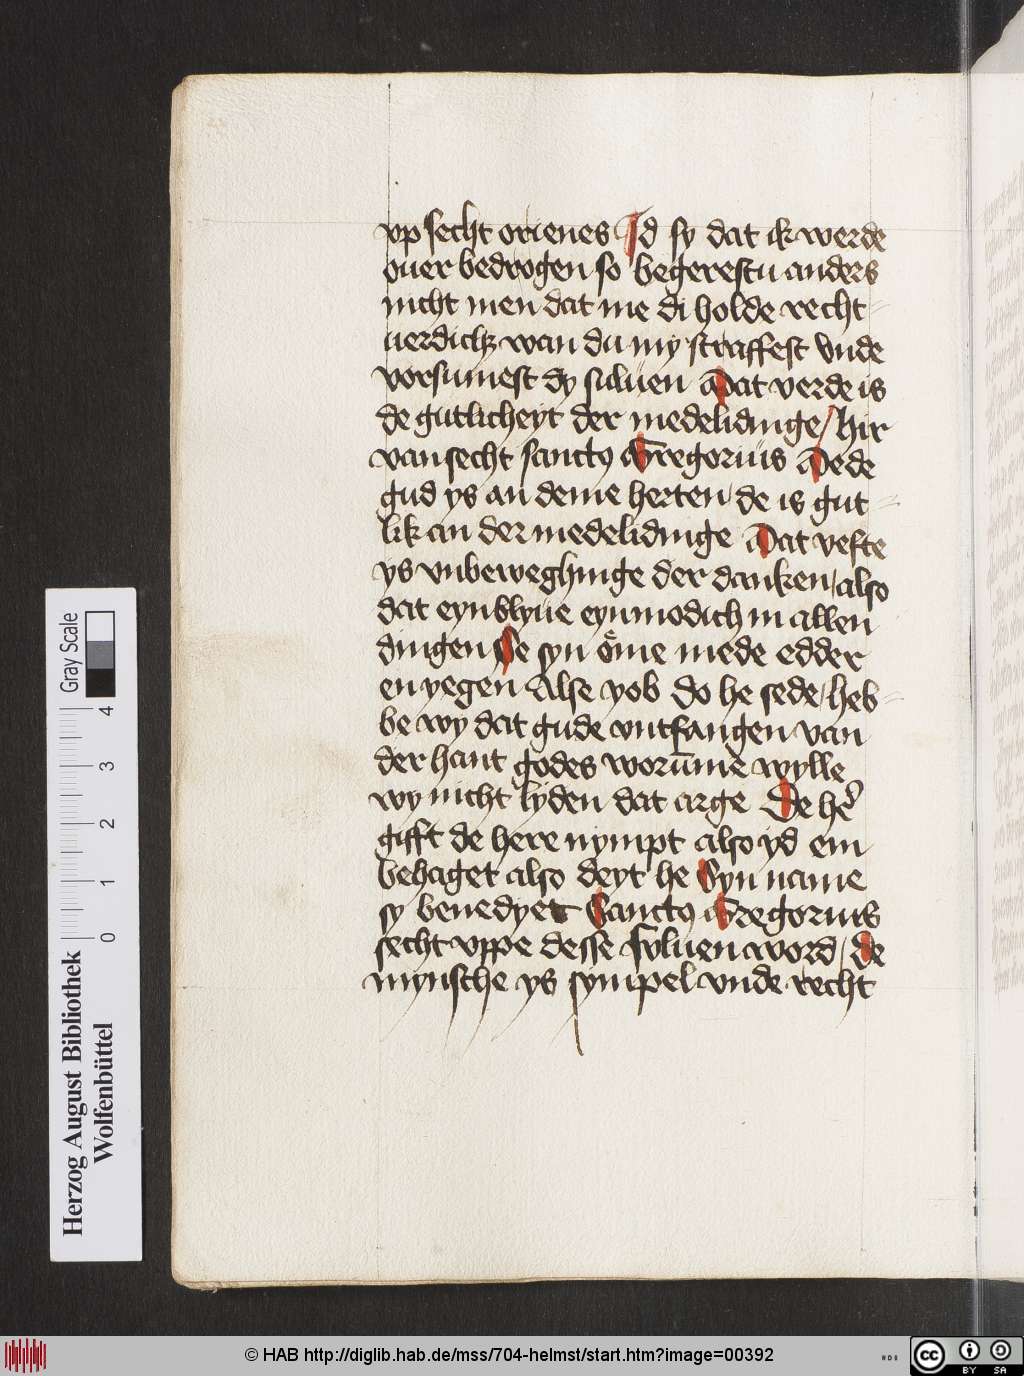 vp secht orienes Jd sy dat ik werde
ouer bedrogen so begerestu anders
nicht men dat me di holde recht-
uerdich wan du my straffest vnde
vorsumest dy suluen Dat verde is
de gutlicheyt der medelidinge / hir
van secht sanctꝰ Gregorius Dede
gud ys an deme herten de is gut-
lik an der medelidinge Dat vefte
ys vnbeweghinge der danken / also
dat eyn blyue eynmodich in allen
dingen Se syn oͤme mede edder
en yegen Alse yob do he sede / heb-
be wy dat gude vntfangen van
der hant godes worūme wylle
wy nicht lyden dat arge De he᷑
gifft de here nympt also yd em
behaget also deyt he Syn name
sy benedyet Sanctꝰ Gregorius
secht vppe desse suluen word / De
mynsche ys sympel vnde recht
Herzog August Bibliothek
Wolfenbüttel
0 1 2 3 4
Gray Scale
© HAB http://diglib.hab.de/mss/704-helmst/start.htm?image=00392
cc BY SA